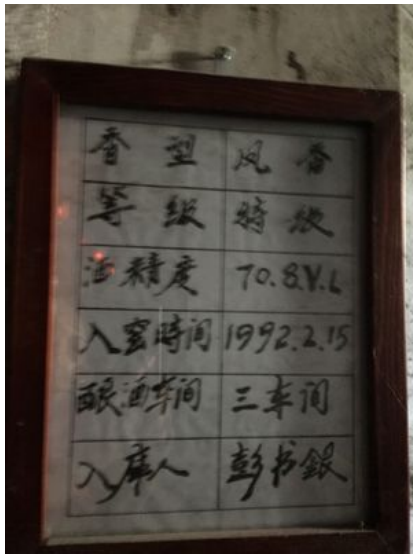 香型 凤香
等级 特级
酒精度 70.8.V.L
入窖时间 1992.2.15
酿酒车间 三车间
入库人 彭书银